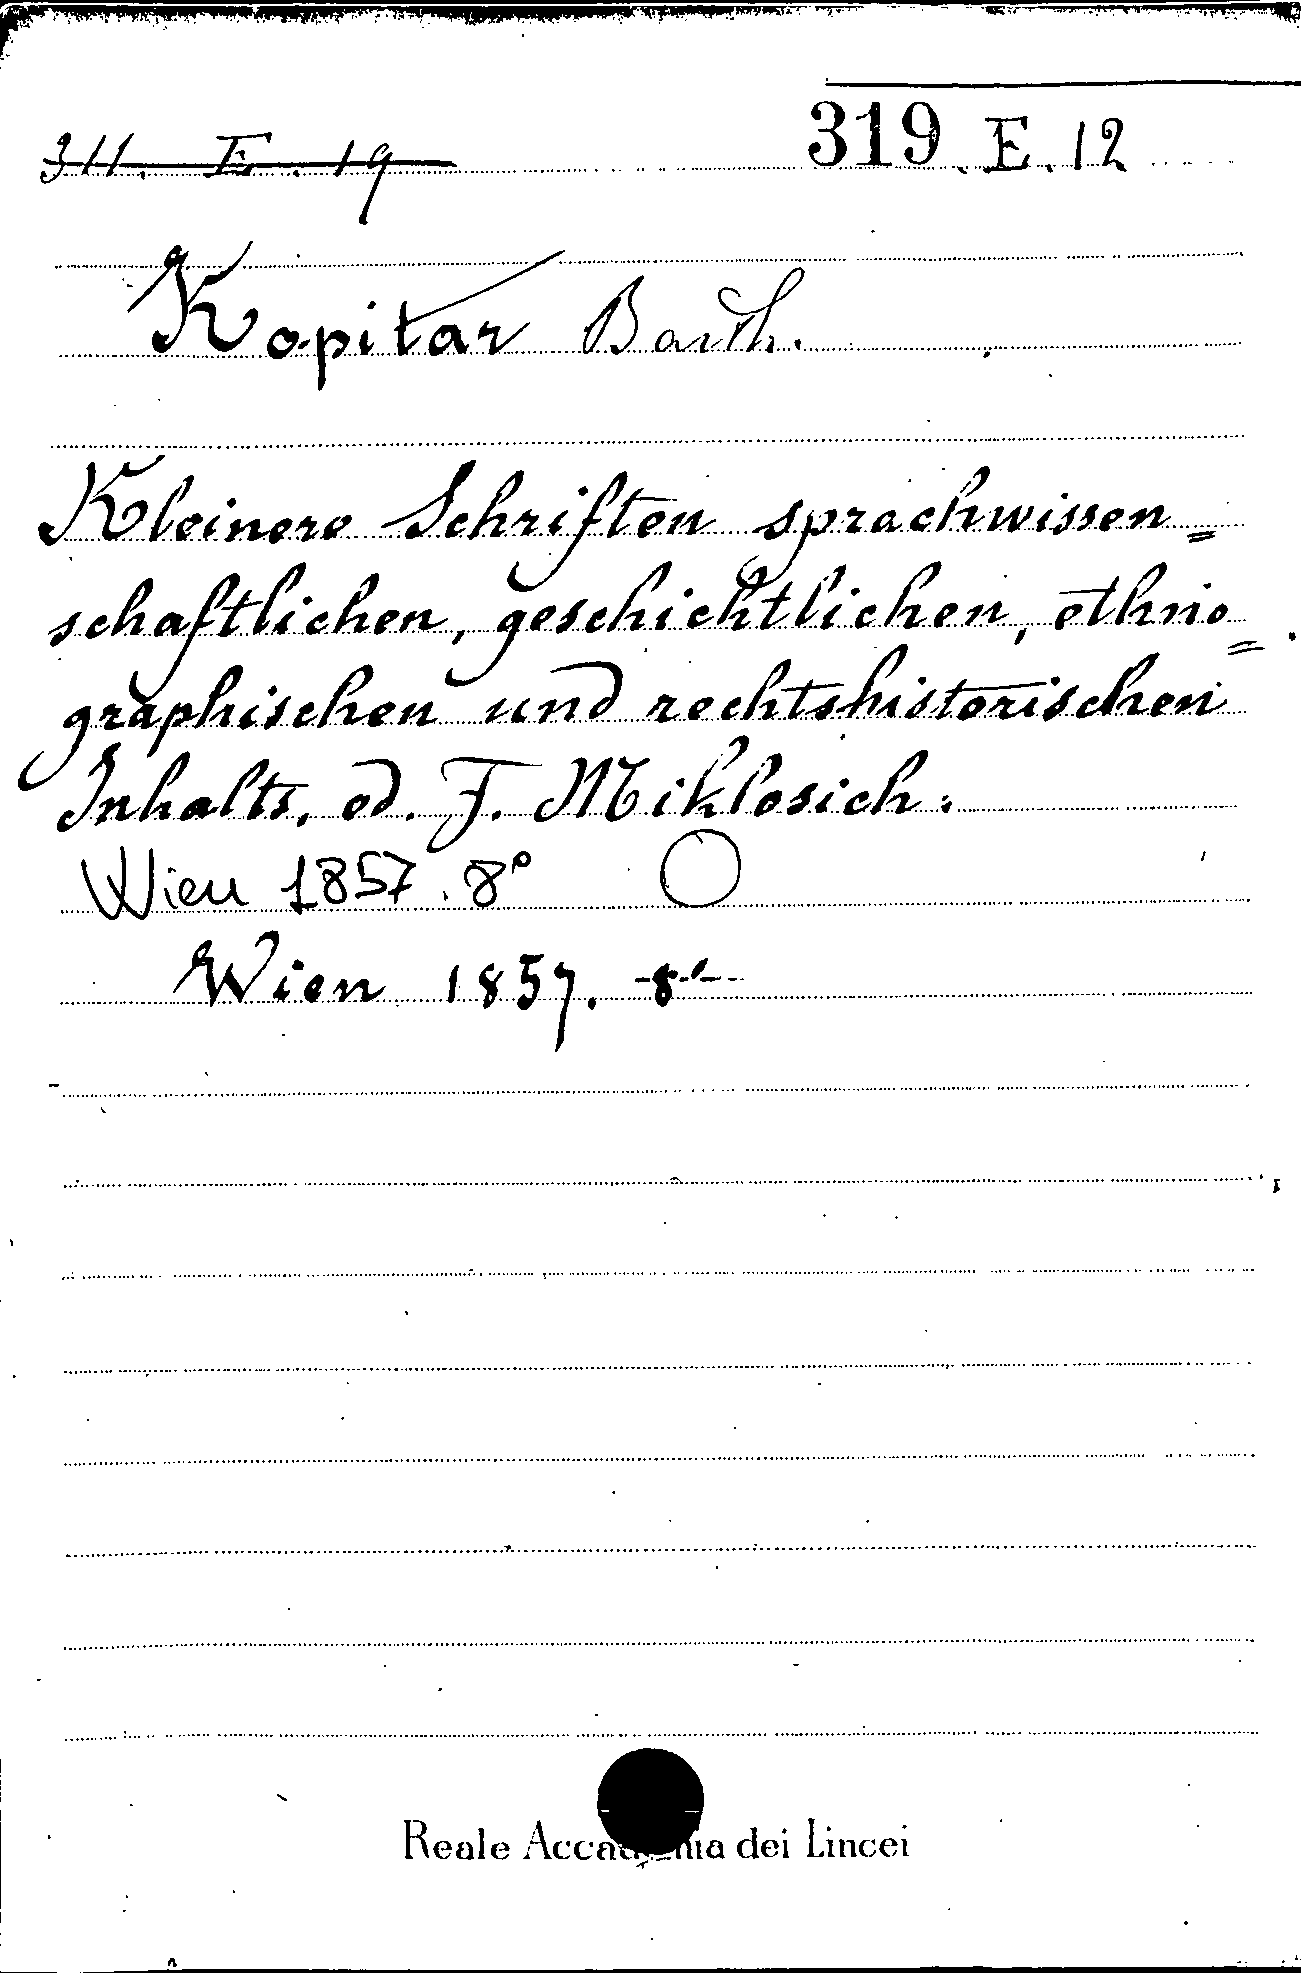 311. E. 19
319. E. 12
Kopitar Barth.
Kleinere Schriften sprachwissen=
schaftlichen, geschichtlichen, ethno=
graphischen und rechtshistorischen
Inhalts, ed. F. Miklosich.
Wien 1857. 8°
Wien 1857. 8°
Reale Accademia dei Lincei